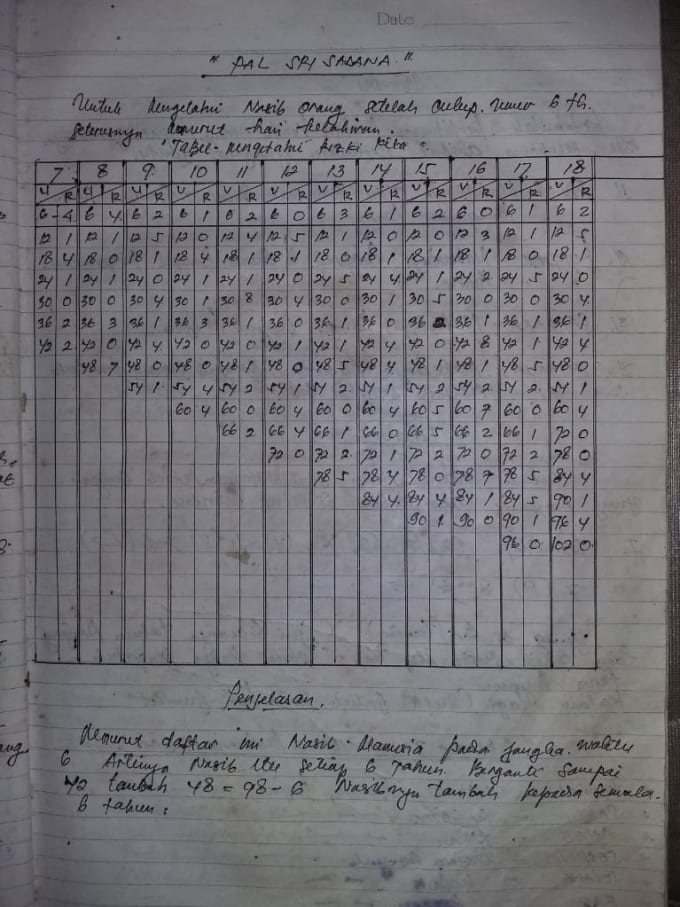 Date
" PAL SRI SADANA. "
Untuk Mengetahui Nasib Orang setelah cukup. Umur 6 th.
seterusnya menurut hari kelahiran.
"Tabel- mengetahui Rizki Kita".
7 8 9 10 11 12 13 14 15 16 17 18
U R U R U R U R U R U R U R U R U R U R U R U R
6-4 6 4 6 2 6 1 6 2 6 0 6 3 6 1 6 2 6 0 6 1 6 2
12 1 12 1 12 5 12 0 12 4 12 5 12 1 12 0 12 0 12 3 12 1 12 5
18 4 18 0 18 1 18 4 18 1 18 1 18 0 18 1 18 1 18 1 18 0 18 1
24 1 24 1 24 0 24 1 24 1 24 0 24 5 24 4 24 1 24 2 24 5 24 0
30 0 30 0 30 4 30 1 30 8 30 4 30 0 30 1 30 5 30 0 30 0 30 4
36 2 36 3 36 1 36 3 36 1 36 0 36 1 36 0 36 36 1 36 1 36 1
42 2 42 0 42 4 42 0 42 0 42 1 42 1 42 4 42 0 42 8 42 1 42 4
48 7 48 0 48 0 48 1 48 0 48 5 48 4 48 1 48 1 48 5 48 0
54 1 54 4 54 2 54 1 54 2 54 1 54 2 54 2 54 2 54 1
60 4 60 0 60 4 60 0 60 4 60 5 60 7 60 0 60 4
66 2 66 4 66 1 66 0 66 5 66 2 66 1 72 0
72 0 72 2 72 1 72 2 72 0 72 2 78 0
78 5 78 4 78 0 78 7 78 5 84 4
84 4 84 4 84 1 84 5 90 1
90 1 90 0 90 1 96 4
96 0 102 0
Penjelasan.
Menurut daftar ini Nasib Manusia pada jangka. waktu
6 Artinya Nasib itu setiap 6 tahun. Berganti Sampai
42 tambah 48 = 98 - 6 Nasibnya tambah kepada semula.
6 tahun: